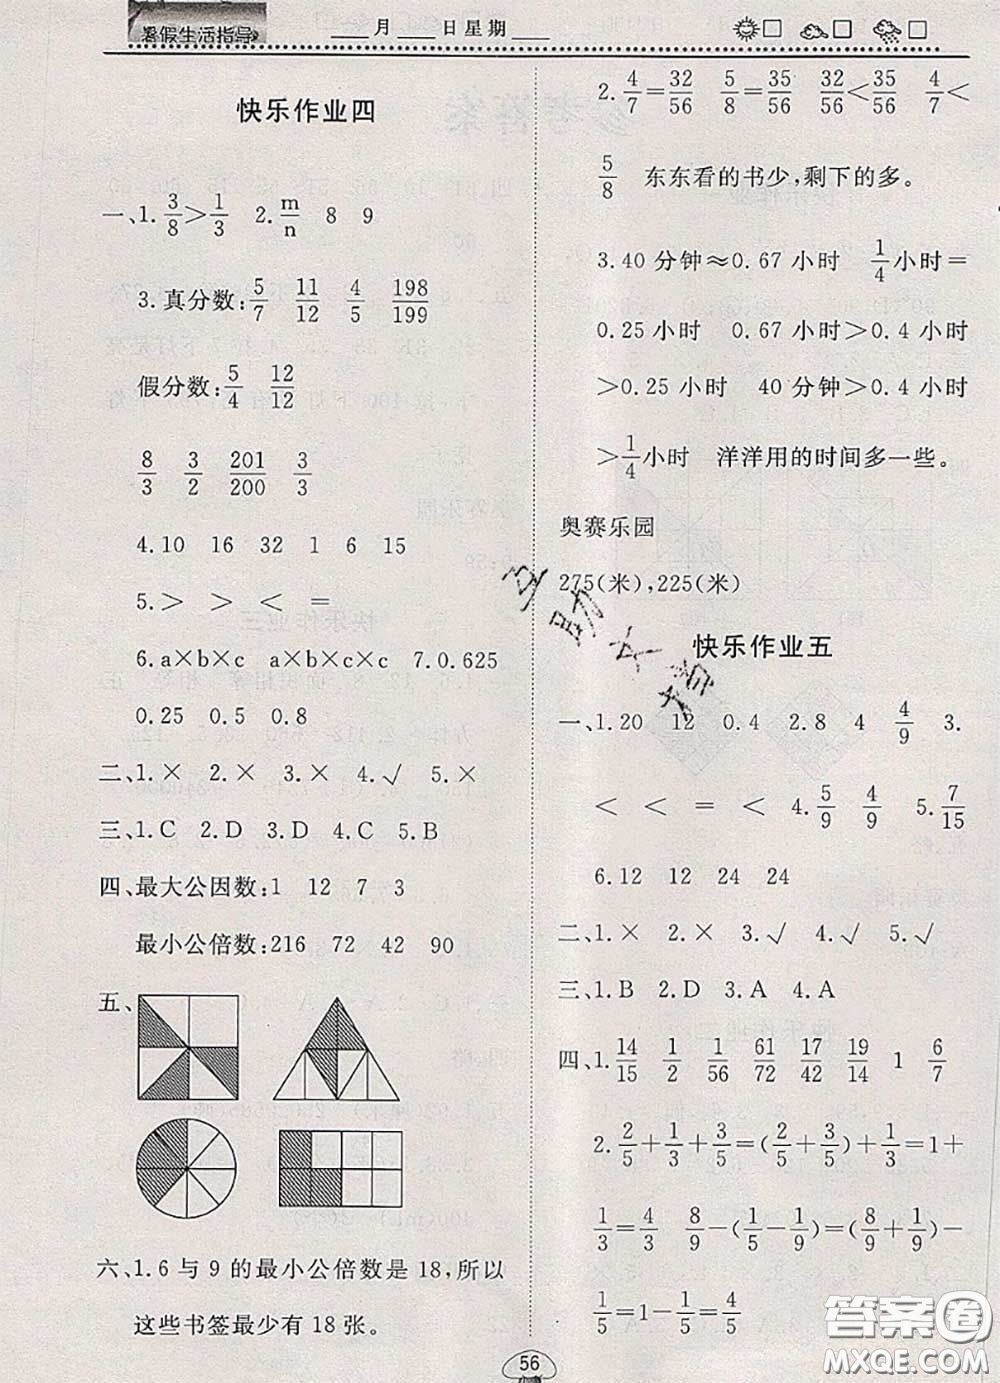 暑假生活指导
月 日星期
快乐作业四
一、1. 3/8>1/3 2. m/n 8 9
3.真分数: 5/7 11/12 4/5 198/199
假分数: 5/4 12/12
8/3 3/2 201/200 3/3
4.10 16 32 1 6 15
5.> > < =
6.a×b×c a×b×c×c 7.0.625
0.25 0.5 0.8
二、1.× 2.× 3.× 4.√ 5.×
三、1.C 2.D 3.D 4.C 5.B
四、最大公因数:1 12 7 3
最小公倍数:216 72 42 90
五、
六、1.6 与 9 的最小公倍数是 18,所以
这些书签最少有 18 张。
2. 4/7=32/56 5/8=35/56 32/56<35/56 4/7<
5/8 东东看的书少,剩下的多。
3.40 分钟≈0.67 小时 1/4小时=
0.25 小时 0.67 小时>0.4 小时
>0.25 小时 40 分钟>0.4 小时
>1/4小时 洋洋用的时间多一些。
奥赛乐园
275(米),225(米)
快乐作业五
一、1.20 12 0.4 2.8 4 4/9 3.
< < = < 4. 5/9 4/9 5. 7/15
6.12 12 24 24
二、1.× 2.× 3.√ 4.√ 5.√
三、1.B 2.D 3.A 4.A
四、1. 14/15 1/2 1/56 61/72 17/42 19/14 1 6/7
2. 2/5+1/3+3/5=(2/5+3/5)+1/3=1+
1/3=4/3 8/9-(1/5-1/9)=(8/9+1/9)-
1/5=1-1/5=4/5
56
答案圈
MXQE.COM